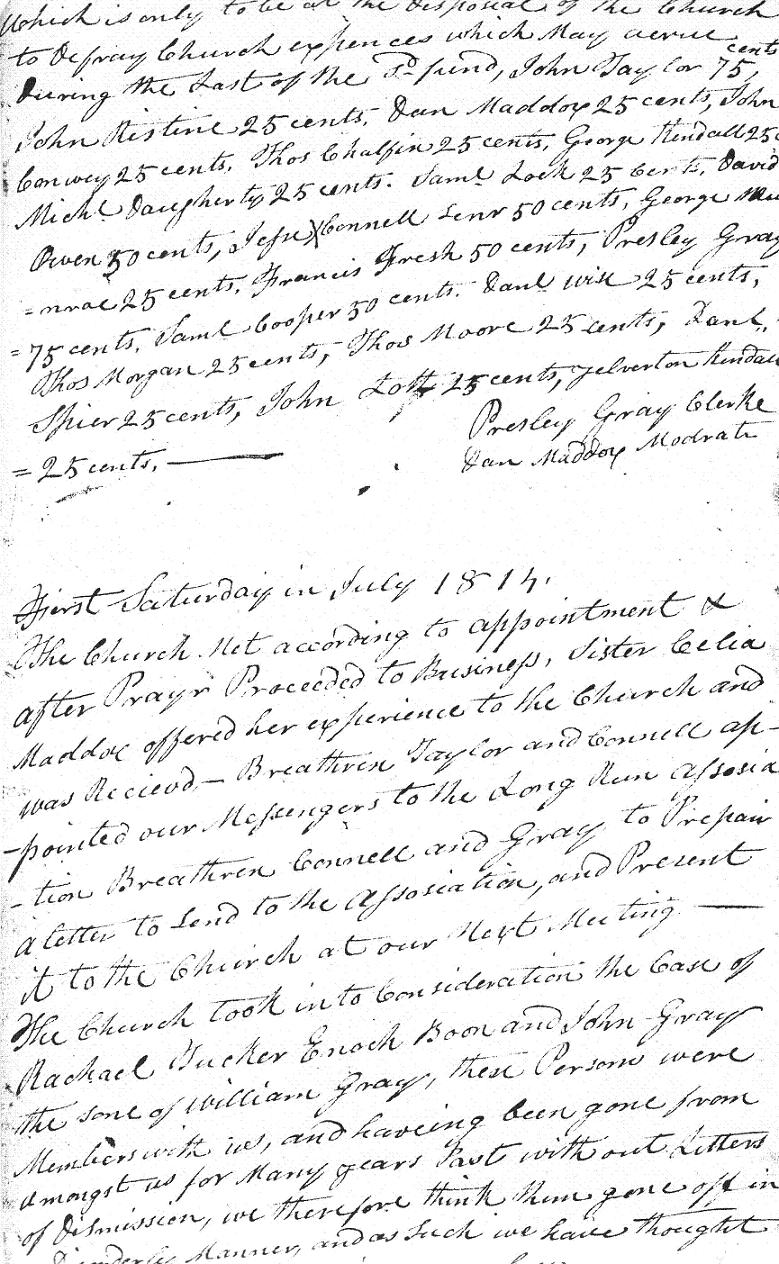 Which is only to be at the disposal of the Church
to Defray Church expences which May acrue
During the Last of the Sd fund, John Taylor 75 cents,
John Ristine 25 cents, Dan Maddox 25 cents, John
Conwey 25 cents, Thos Chalfin 25 cents, George Kendall 25 c
Michl Daugherty 25 cents. Saml Lock 25 Cents, David
Owen 50 cents, Jesse Connell Senr 50 cents, George Mu
=nroe 25 cents, Francis Fresh 50 cents, Presley Gray
=75 cents, Saml Cooper 50 cents. Danl wise 25 cents,
Thos Morgan 25 cents, Thos Moore 25 cents, Danl.
Spier 25 cents, John Lott 25 cents, Yelverton Kendall
=25 cents.
Presley Gray Clerke
Dan Maddox Modrate
First Saturday in July 1814.
The Church Met according to appointment &
after Prayr Proceeded to Business, Sister Celia
Maddox offered her experience to the Church and
was Recievd – Breathren Taylor and Connell ap-
-pointed our Messengers to the Long Run Assosia
-tion Breathren Connell and Gray to Prepair
a letter to Send to the Assosiation, and Present
it to the Church at our Next Meeting
The Church took into Consideration the Case of
Rachael Tucker Enoch Boon and John Gray
the sone of William Gray, these Persons were
Members with us, and haveing been gone from
amongst us for Many years Past with out Letters
of Dismission, we therefore think them gone off in
Disorderly Manner, and as such we have thought